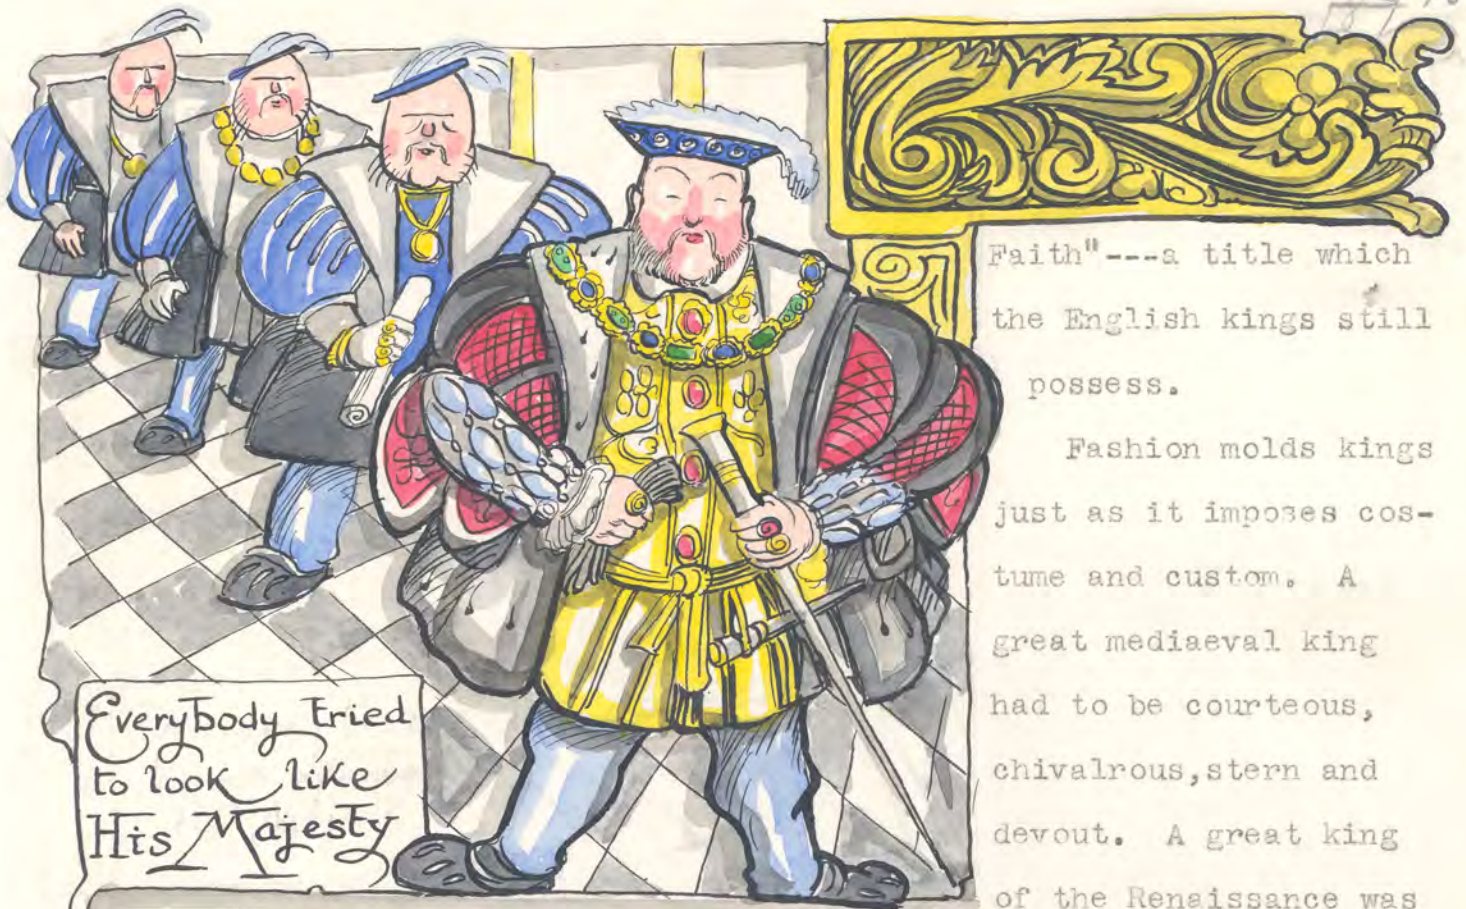 Everybody tried
to look like
His Majesty
Faith"---a title which
the English kings still
possess.
Fashion molds kings
just as it imposes cos-
tume and custom. A
great mediaeval king
had to be courteous,
chivalrous,stern and
devout. A great king
of the Renaissance was